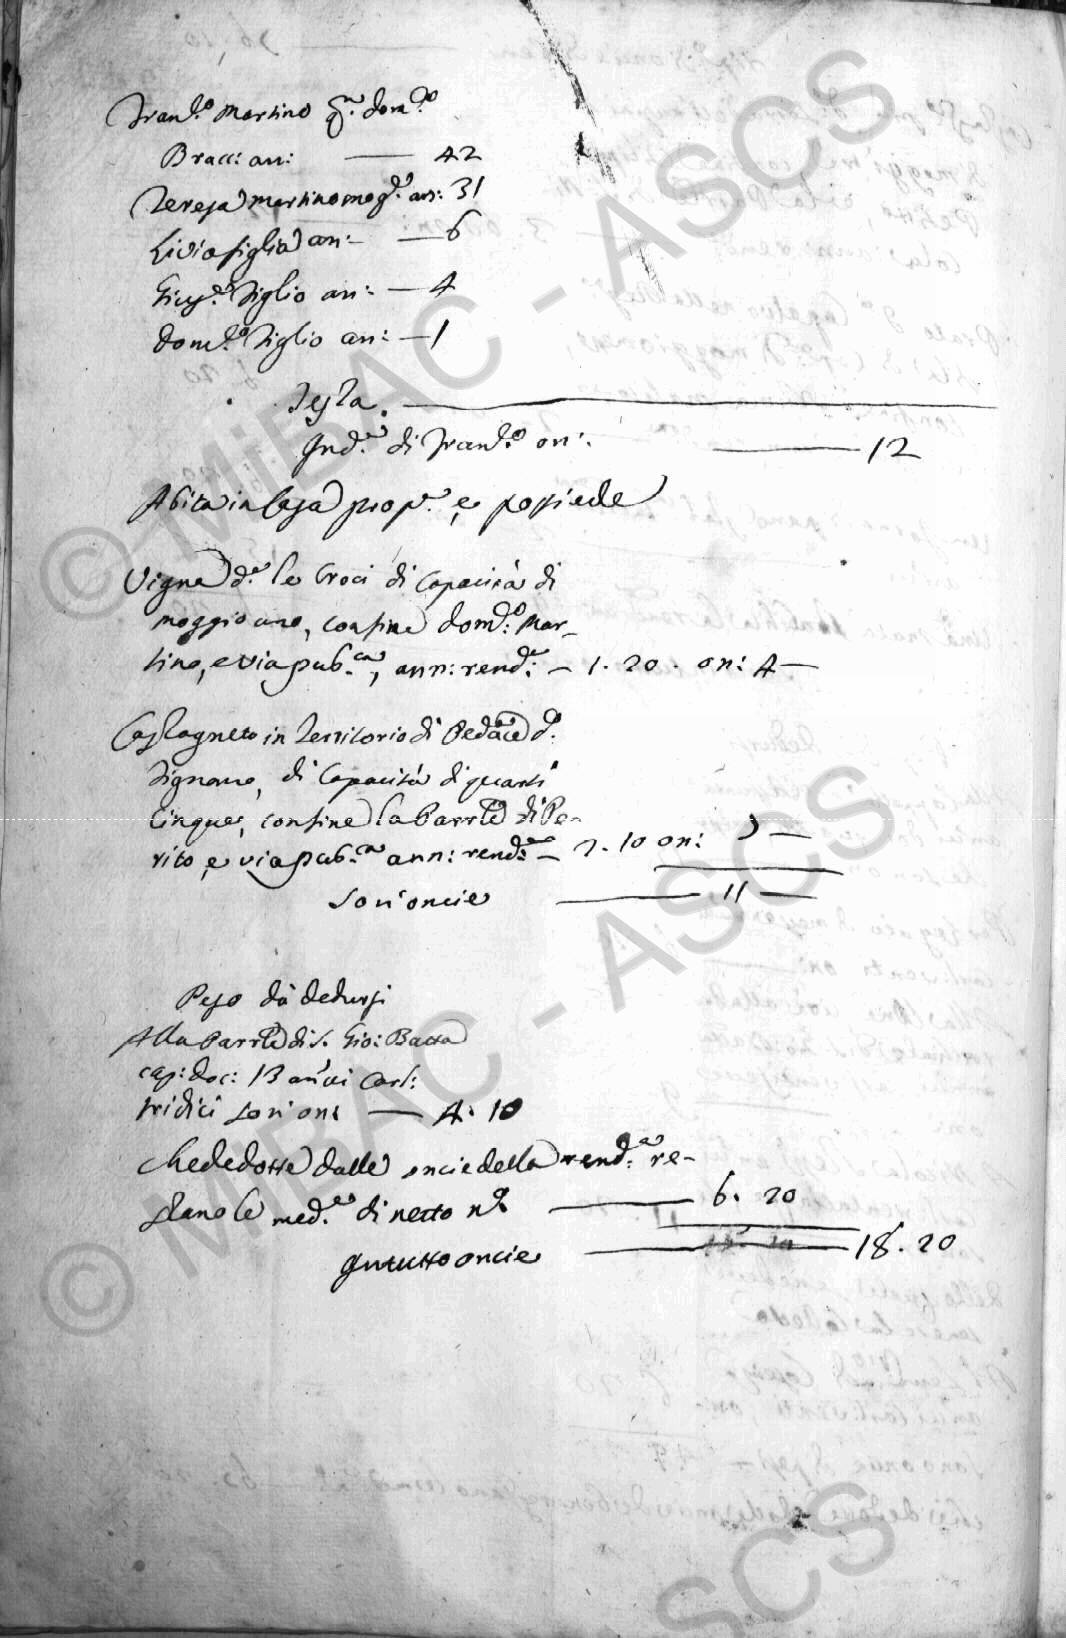 Fran.co Martino q.m Dom.co
Bracc: an: — 42
Teresa Martino mog.e an: 31
Livia figlia an: — 6
Gius.e figlio an: — 4
Dom.co figlio an: — 1
Testa. —
Ind.a di Fran.co on: — 12
Abita in Casa prop.a, e possiede
Vigna d.a le Croci di Capacità di
moggio uno, confina Dom.co Mar-
tino, e via pub.ca, ann: rend.a — 1. 20. on: 4 —
Castagneto in Territorio di Pedace d.o
Fignano, di Capacità di quarti
Cinque, confine la Parr.le di Pe-
rito, e via pub.ca ann: rend.a — 2. 10 on: 7 —
Son' oncie — 11 —
Peso da dedursi
Alla Parr.le di S. Gio: Batta
cap: doc: 13 annui Carl:
tridici son' on: — 4. 10
che dedotte dalle oncie della rend.a re-
stano le med.e di netto n.o — 6. 20
In tutto oncie — 18. 20
© MiBAC - ASCS
© MiBAC - ASCS
ASCS